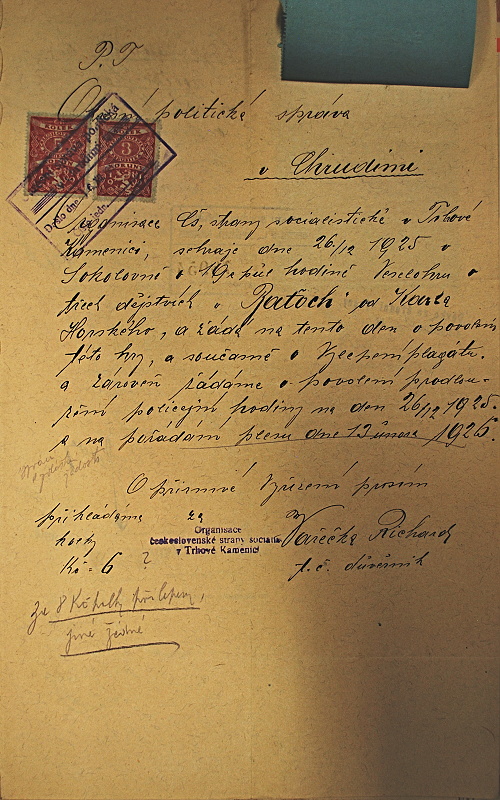 P. T
politická správa
v Chrudimi
KOLEK
3
KORUN
Došlo dne
Organisace Čs, strany socialistické v Trhové
Kamenici, sehraje dne 26/12 1925 v
Sokolovně v hodině Veselohru o
třech dějstvích od Karla
Horského, a žádá na tento den o povolení
této hry, a současně o Vylepení plagátů.
a zároveň žádáme o povolení prodlou-
žení policejní hodiny na den 26/12 1925.
a na pořádání plesu dne 13 února 1926
O příznivé Vyřízení prosím
přikládáme za
kolky
Kč = 6
Organisace
československé strany socialis
v Trhové Kamenici
Vařečka Richard
t. č. důvěrník
?
Za 8 Kč